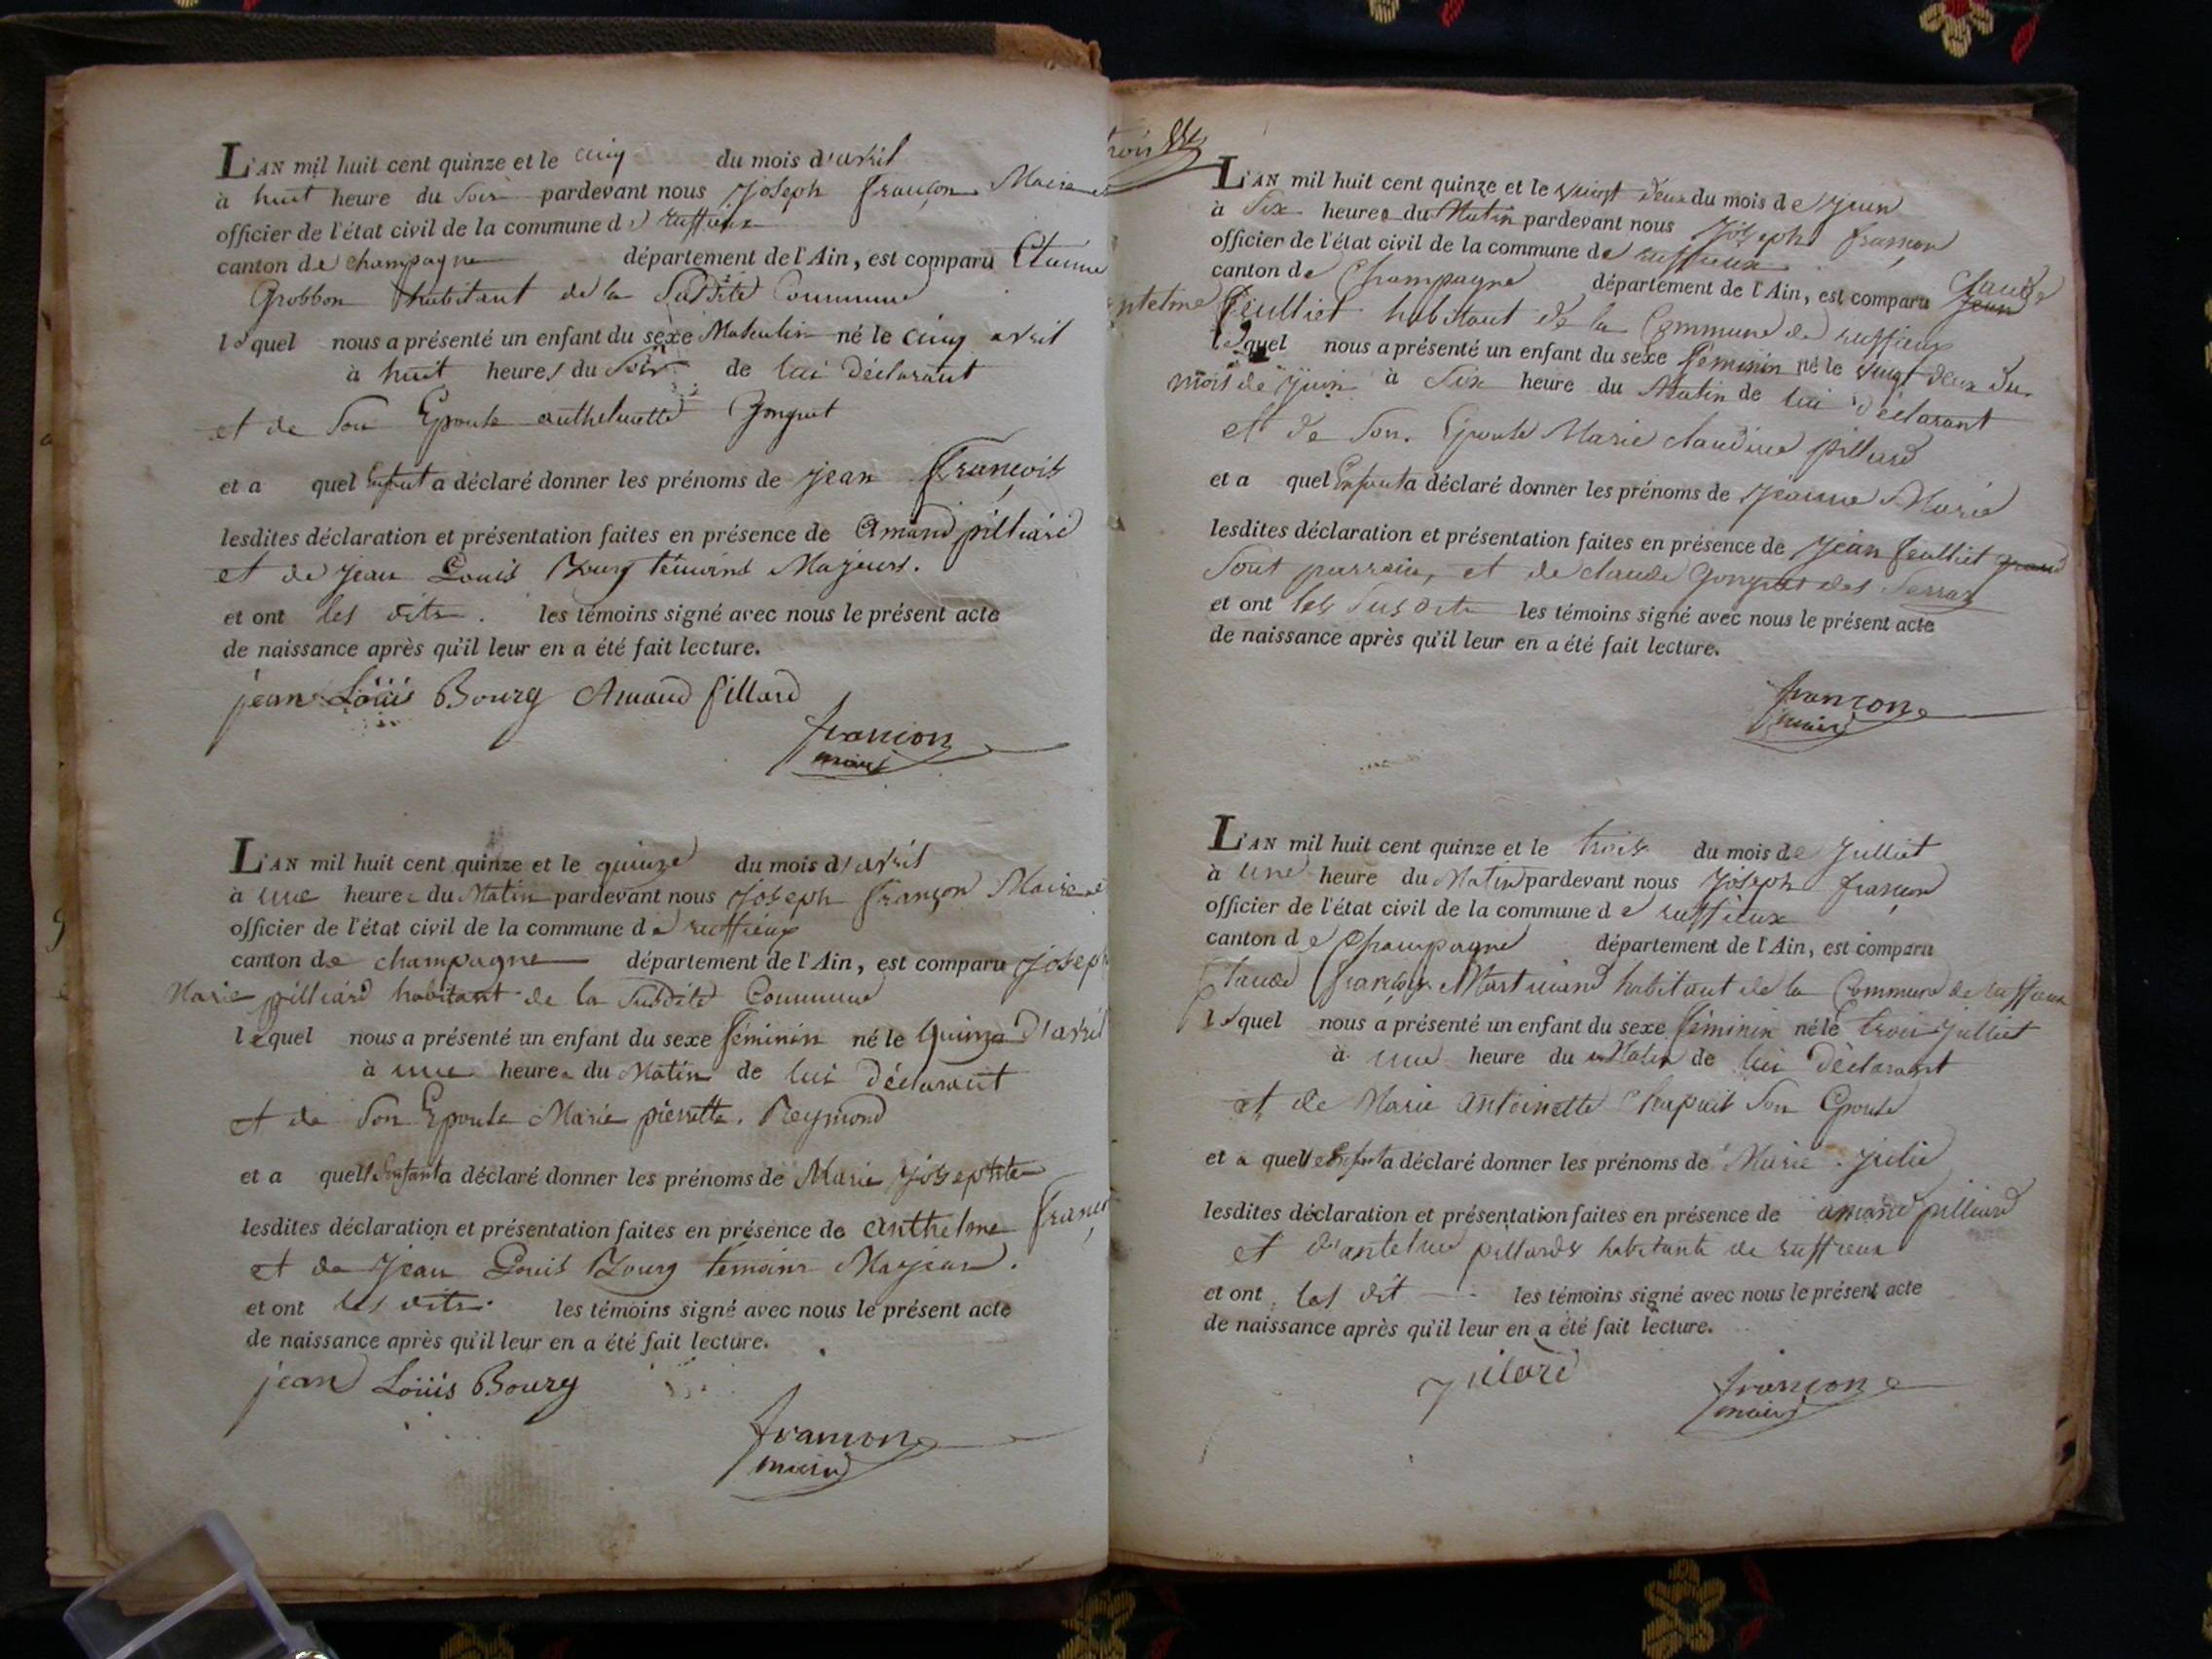 L'AN mil huit cent quinze et le cinq du mois d'avril
à huit heure du Soir pardevant nous Joseph françon Maire
officier de l'état civil de la commune de ruffieux
canton de champagne département de l'Ain, est comparu
Grobbon habitant de la Susdite Commune
lequel nous a présenté un enfant du sexe Masculin né le cinq avril
à huit heures du Soir de lui déclarant
et de Son Epouse anthelmette Gonguet
et a quel Enfant a déclaré donner les prénoms de jean françois
lesdites déclaration et présentation faites en présence de Amand pilliard
et de jean Louis Bourg témoins Majeurs.
et ont les dits. les témoins signé avec nous le présent acte
de naissance après qu'il leur en a été fait lecture.
jean Loüis Bourg Amand pillard
françon
maire
L'AN mil huit cent quinze et le quinze du mois d'avril
à une heure du Matin pardevant nous Joseph françon Maire
officier de l'état civil de la commune de ruffieux
canton de champagne département de l'Ain, est comparu joseph
Marie pilliard habitant de la Susdite Commune
lequel nous a présenté un enfant du sexe féminin né le quinze d'avril
à une heure du Matin de lui déclarant
et de Son Epouse Marie pierrette. Reymond
et a quelle Enfant a déclaré donner les prénoms de Marie josephte
lesdites déclaration et présentation faites en présence de anthelme
et de jean Louis Bourg témoins Majeur.
et ont les dits. les témoins signé avec nous le présent acte
de naissance après qu'il leur en a été fait lecture.
jean Loüis Bourg
françon
maire
L'AN mil huit cent quinze et le vingt deux du mois de juin
à Six heure du Matin pardevant nous Joseph françon
officier de l'état civil de la commune de ruffieux
canton de Champagne département de l'Ain, est comparu Claude
feulliet habitant de la Commune de ruffieux
lequel nous a présenté un enfant du sexe feminin né le vingt deux du
mois de juin à Six heure du Matin de lui déclarant
et de Son. Epouse Marie claudine pillard
et a quel Enfant a déclaré donner les prénoms de jeanne Marie
lesdites déclaration et présentation faites en présence de jean feulliet
Sout parrain, et de claude Gonguet des Serraz
et ont les Susdits les témoins signé avec nous le présent acte
de naissance après qu'il leur en a été fait lecture.
françon
maire
L'AN mil huit cent quinze et le trois du mois de Julliet
à une heure du Matin pardevant nous Joseph françon
officier de l'état civil de la commune de ruffieux
canton de Champagne département de l'Ain, est comparu
Claude françois Martinand habitant de la Commune de ruffieux
lequel nous a présenté un enfant du sexe féminin né le trois julliet
à une heure du Matin de lui déclarant
et de Marie antoinette Chapuit Son Epouse
et a quelle Enfant a déclaré donner les prénoms de Marie. julie
lesdites déclaration et présentation faites en présence de amand pilliard
et d'antelme pillards habitants de ruffieux
et ont les dit les témoins signé avec nous le présent acte
de naissance après qu'il leur en a été fait lecture.
françon
maire